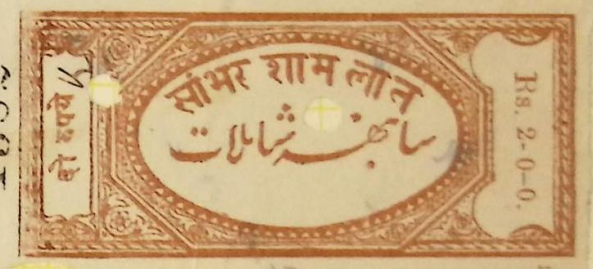 दो रुपये
सांभर शामलात
سانبھر شاملات
Rs. 2-0-0.